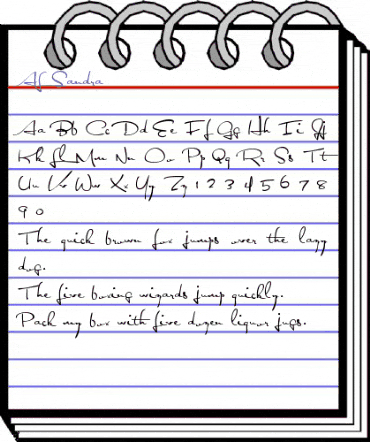 Af Sandra
Aa Bb Cc Dd Ee Ff Gg Hh Ii Jj
Kk Ll Mm Nn Oo Pp Qq Rr Ss Tt
Uu Vv Ww Xx Yy Zz 1 2 3 4 5 6 7 8
9 0
The quick brown fox jumps over the lazy
dog.
The five boxing wizards jump quickly.
Pack my box with five dozen liquor jugs.